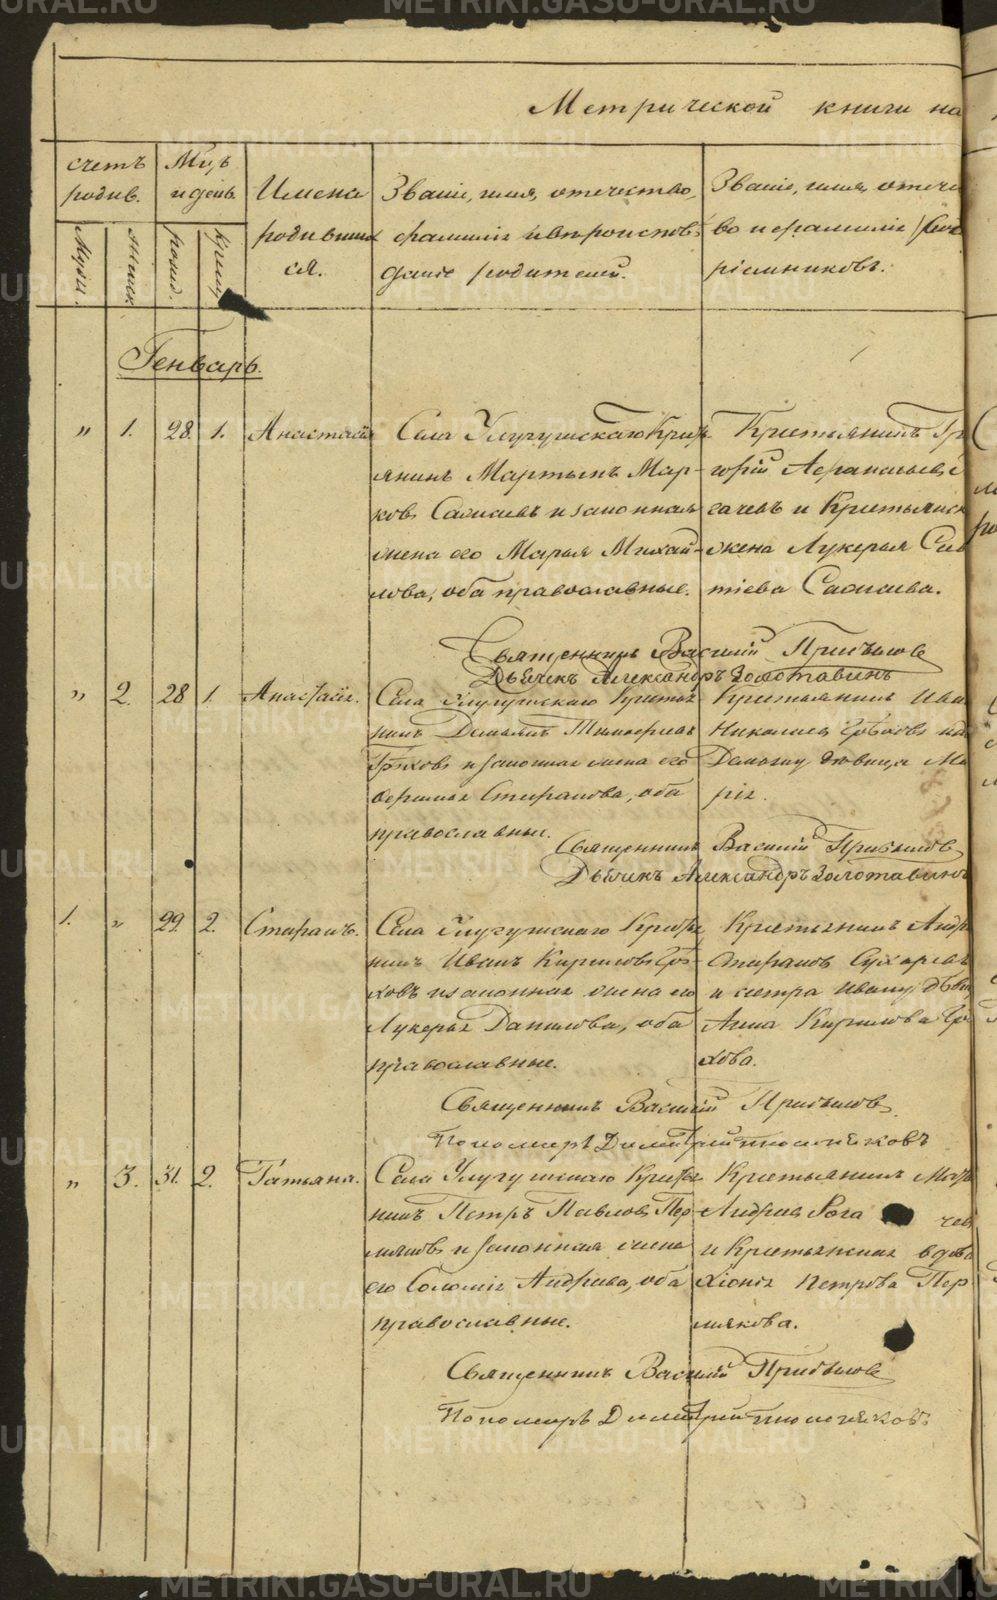 Метрической книги на
счетъ родив.
Мцъ и день
Имена родившихся.
Званіе, имя, отечество, фамилія и вѣроисповѣданіе родителей.
Званіе, имя, отечество и фамилія воспріемниковъ.
Муж.
Женск
рожд.
крещ.
Генварь.
" 1. 28. 1. Анастасія
Села Улугушскаго Крестьянинъ Мартынъ Мар-
ковъ и законная
жена его Марья Михай-
лова, оба православные.
Крестьянинъ Гри
горій Афанасьевъ
и Крестьянск
жена Лукерья Сав
тіева
Священникъ Василій Прибыловъ
Дьячекъ Александръ Золотавинъ
" 2. 28 1. Анастасія.
Села Улугушскаго Крестья
нинъ Демьянъ Тимофеевъ
Грѣховъ и законная жена его
Ефимья Стефанова, оба
православные.
Крестьянинъ Иван
Николаевъ Грѣховъ
дѣвица Ма
рія.
Священникъ Василій Прибыловъ
Дьячекъ Александръ Золотавинъ
1. " 29. 2. Стефанъ.
Села Улугушскаго Крестья
нинъ Иванъ Кириловъ Грѣ-
ховъ и законная жена его
Лукерья Данилова, оба
православные.
Крестьянинъ Андр
Стефановъ Сухаревъ
и сестра Ивану дѣви
Анна Кирилова Грѣ
хова.
Священникъ Василій Прибыловъ.
Пономарь Димитрій
" 3. 31. 2. Татьяна.
Села Улугушскаго Крестья
нинъ Петръ Павловъ Пер
мяковъ и законная жена
его Соломія Андреева, оба
православные.
Крестьянинъ
Андреевъ Рога чев
и Крестьянская вдова
Хіонія Петрова Пер
мякова.
Священникъ Василій Прибыловъ
Пономарь Димитрій
METRIKI.GASO-URAL.RU